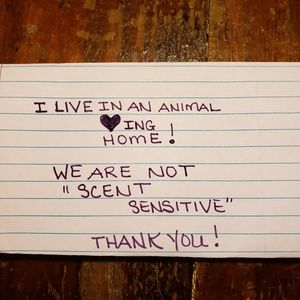 I LIVE IN AN ANIMAL
♥ING
HOME!
WE ARE NOT
"SCENT
SENSITIVE"
THANK YOU!